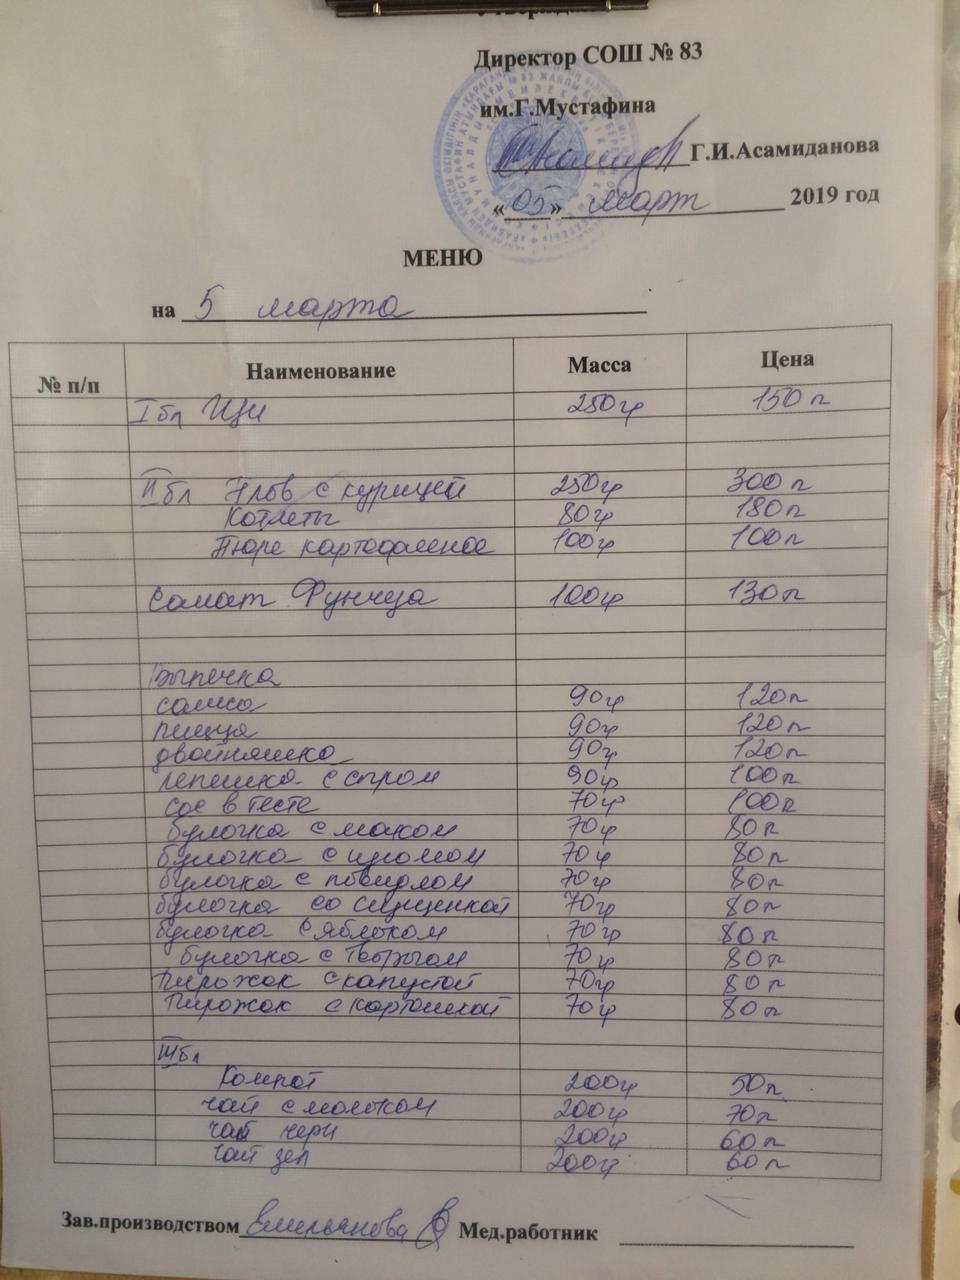 Директор СОШ № 83
им.Г.Мустафина
Г.И.Асамиданова
«05» март 2019 год
МЕНЮ
на 5 марта
№ п/п Наименование Масса Цена
I бл Щи 250гр 150т
II бл Плов с курицей 250гр 300т
Котлеты 80гр 180т
Пюре картофельное 100гр 100т
Салат Фунчеза 100гр 130т
Выпечка
самса 90гр 120т
пицца 90гр 120т
двойняшка 90гр 120т
лепешка с сыром 90гр 100т
сос в тесте 70гр 100т
булочка с маком 70гр 80т
булочка с изюмом 70гр 80т
булочка с повидлом 70гр 80т
булочка со сгущенкой 70гр 80т
булочка с яблоком 70гр 80т
булочка с творогом 70гр 80т
Пирожок с капустой 70гр 80т
Пирожок с картошкой 70гр 80т
III бл
Компот 200гр 50т
чай с молоком 200гр 70т
чай черн 200гр 60т
чай зел 200гр 60т
Зав.производством Емельянова Мед.работник